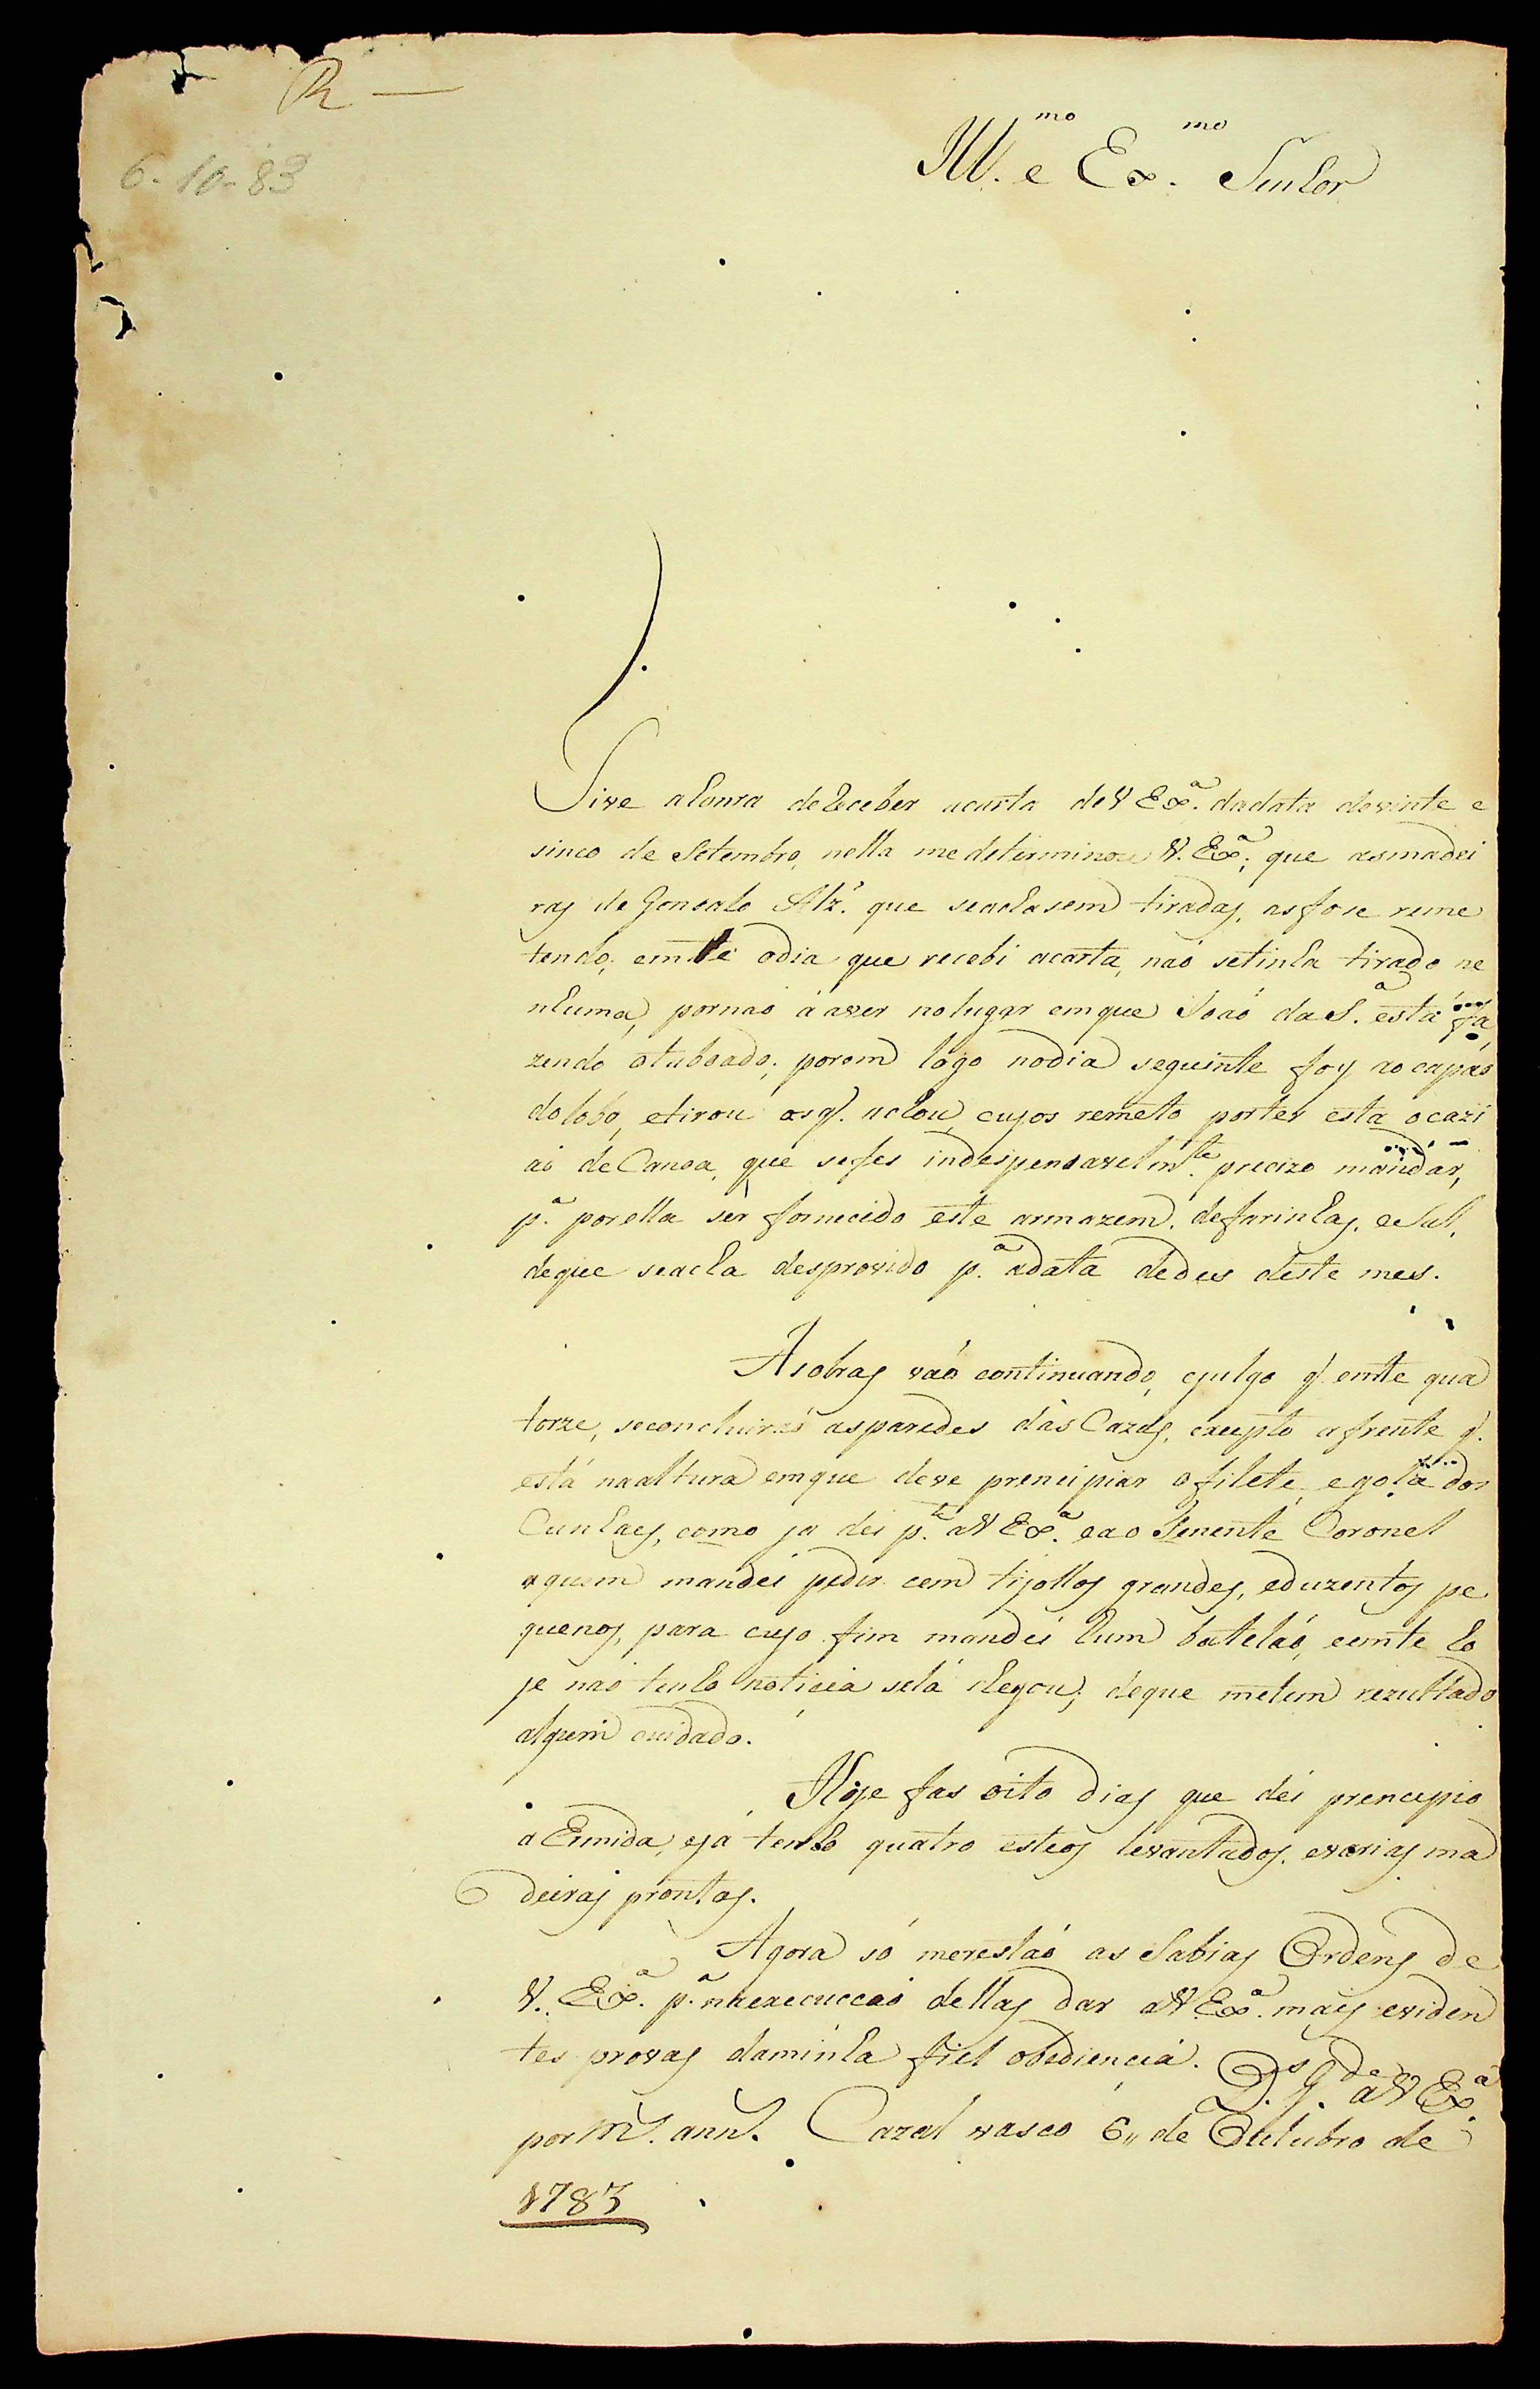 R —
6-10-83
Ill.mo e Ex.mo Senhor
Tive ahonra deReceber acarta deV Ex.ª dadata devinte e
sinco de Setembro, nella medeterminou V. Ex.ª, que asmadei
ras de Gonsalo Alz.' que seachasem tiradas, asfose reme
tendo; emthé odia que recebi acarta, naó setinha tirado ne
nhuma, pornaó áaver nolugar emque Joaó daS.ª está fa
zendo otaboado; porem lógo nodia seguinte foy ao capaó
dolobo, etirou asq'. achou, cujos remeto porter esta ocazi
aó deCanoa, que sefes indespensavelm.te precizo mandar,
p.ª porella ser fornecido este armazem, defarinhas, eSal,
deque seacha desprovido p.ª adata dedes deste mes.
Asobras vaó continuando, ejulgo q' emte qua
torze, seconcluiraó asparedes dasCazas, excepto afrente q'.
está naaltura emque deve prencipiar ofilete, egola dos
Cunhaes, como ja dei p.te aV Ex.ª eao Tenente Coronel
aquem mandei pedir cem tijollos grandes, eduzentos pe
quenos, para cujo fim mandei hum batelaó, eemte ho
je naó tenho noticia selá chegou; deque metem rezultado
algum cuidado.
Hoje fas oito dias que dei prencipio
a Ermida, ejá tenho quatro esteos levantados, evarias ma
deiras prontas.
Agora só merestaó as Sabias Ordens de
V. Ex.ª p.ª naexecuccaó dellas dar aV Ex.ª mais eviden
tes provas daminha fiel obediencia. D.s G.de aV Ex.ª
por m.s ann.s Cazal vasco 6,, de Outubro de
1783